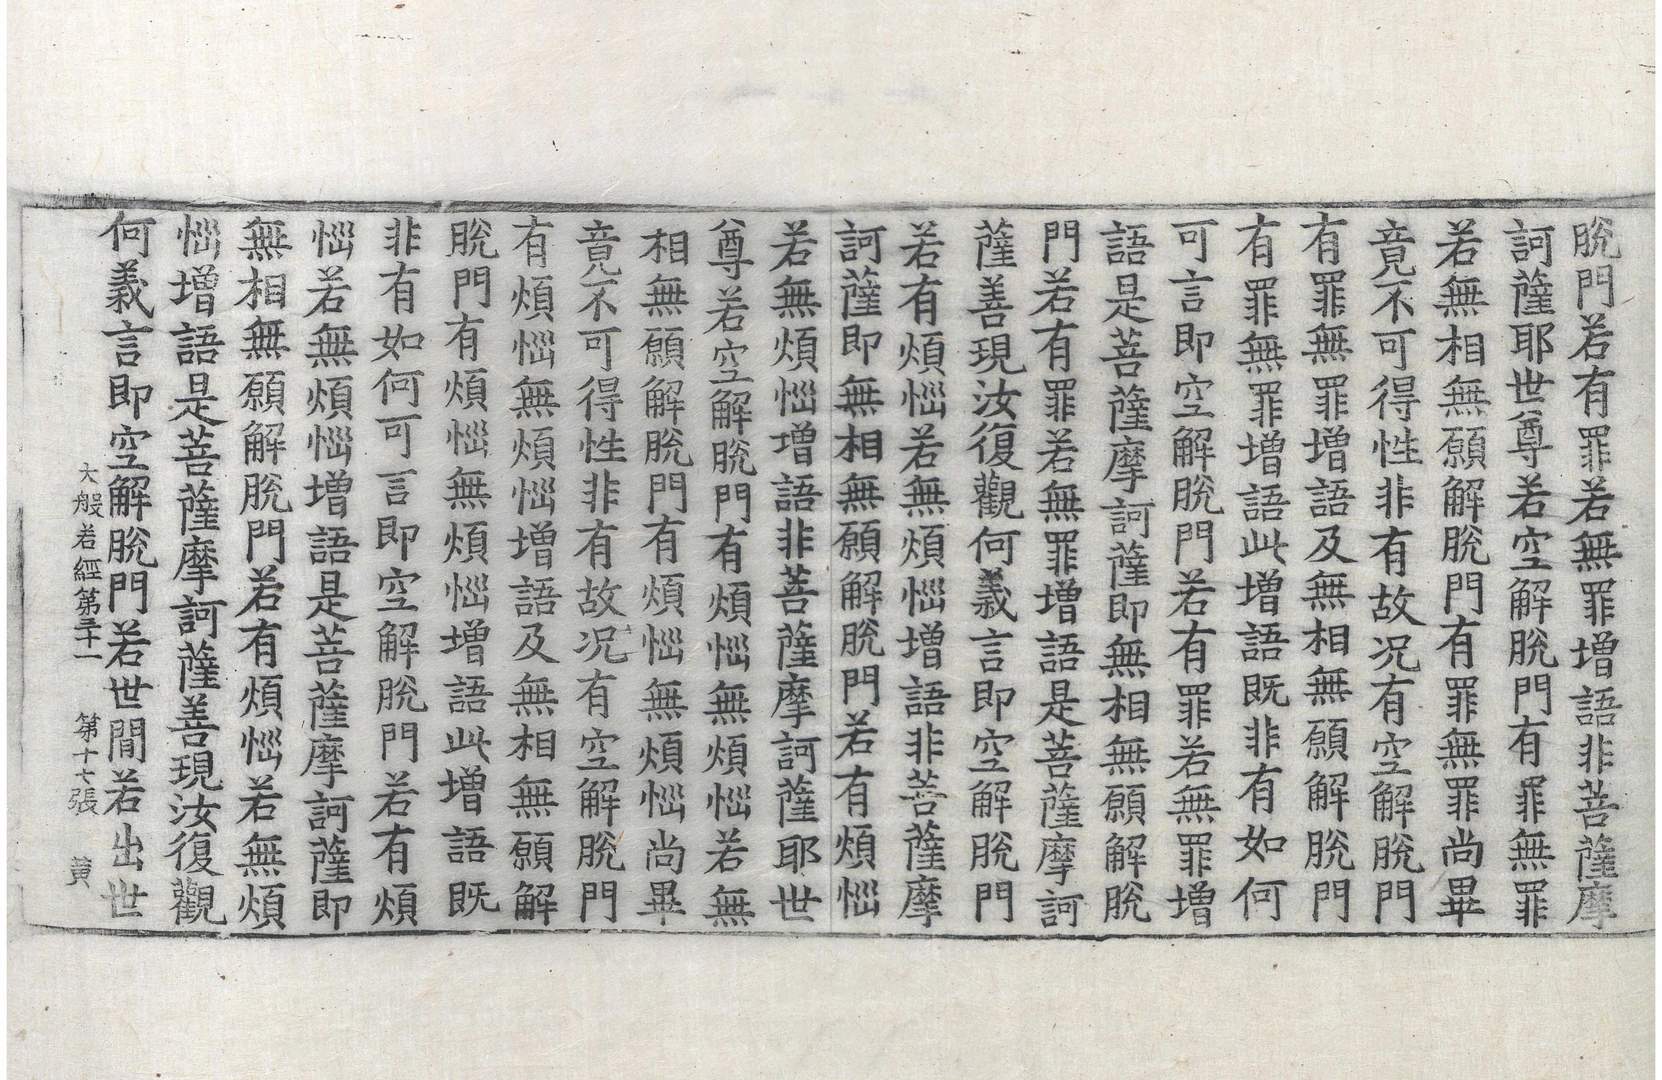 脫門若有罪若無罪增語非菩薩摩
訶薩耶世尊若空解脫門有罪無罪
若無相無願解脫門有罪無罪尚畢
竟不可得性非有故况有空解脫門
有罪無罪增語及無相無願解脫門
有罪無罪增語此增語既非有如何
可言即空解脫門若有罪若無罪增
語是菩薩摩訶薩即無相無願解脫
門若有罪若無罪增語是菩薩摩訶
薩善現汝復觀何義言即空解脫門
若有煩惱若無煩惱增語非菩薩摩
訶薩即無相無願解脫門若有煩惱
若無煩惱增語非菩薩摩訶薩耶世
尊若空解脫門有煩惱無煩惱若無
相無願解脫門有煩惱無煩惱尚畢
竟不可得性非有故况有空解脫門
有煩惱無煩惱增語及無相無願解
脫門有煩惱無煩惱增語此增語既
非有如何可言即空解脫門若有煩
惱若無煩惱增語是菩薩摩訶薩即
無相無願解脫門若有煩惱若無煩
惱增語是菩薩摩訶薩善現汝復觀
何義言即空解脫門若世間若出世
大般若經第三十一 第十七張 黄